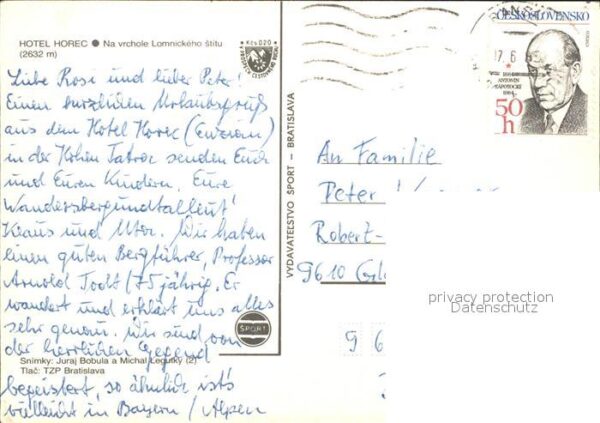 HOTEL HOREC ● Na vrchole Lomnického štítu
(2632 m)
Liebe Rosi und lieber Peter!
Einen herzlichen Urlaubsgruß
aus dem Hotel Horec (Enzian)
in der Hohen Tatra senden Euch
und Euren Kindern, Eure
Klaus und Uta. Wir haben
einen guten Bergführer, Professor
Arnold Todt / 75 jährig. Er
wandert und erklärt uns alles
sehr genau. Wir sind von
der herrlichen Gegend
Snímky: Juraj Bobula a Michal Legutky (2)
Tlač: TZP Bratislava
begeistert, so ähnlich ist's
vielleicht in Bayern / Alpen
VYDAVATEĽSTVO ŠPORT – BRATISLAVA
ŠPORT
ČESKOSLOVENSKO
ANTONÍN
ZÁPOTOCKÝ
50
h
An Familie
Peter
Robert-
9610
privacy protection
Datenschutz
9 6